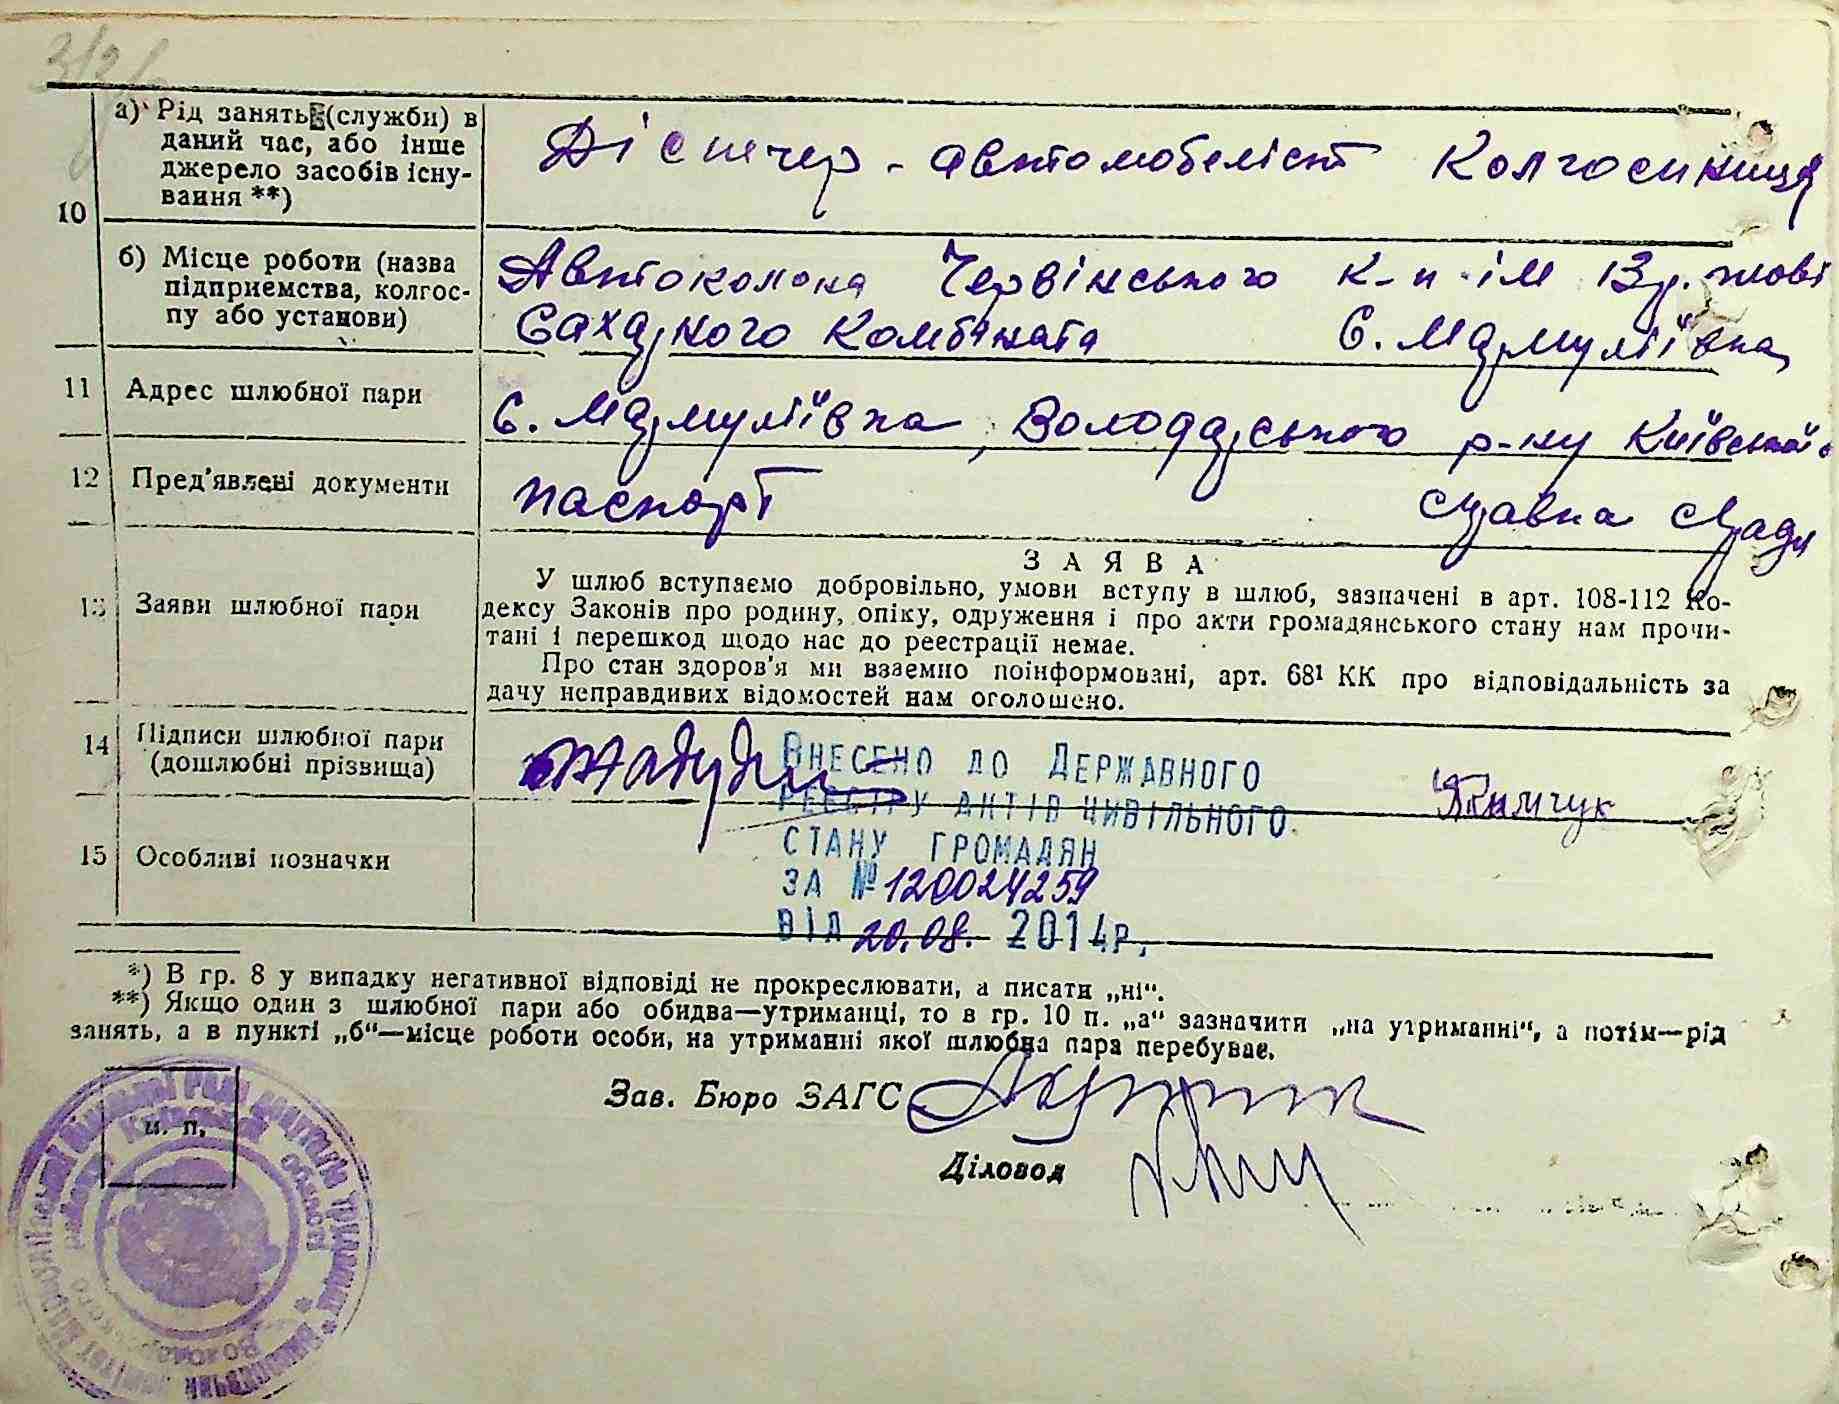 10
а) Рід занять (служби) в
даний час, або інше
джерело засобів існу-
вання **)
Діспечер - автомобеліст Колгоспниця
б) Місце роботи (назва
підприємства, колгос-
пу або установи)
Автоколона Червінського к-п ім
Сахарного Комбіната с. Мармуліївка
11 Адрес шлюбної пари
с. Мармуліївка, Володарського р-ну Київської
12 Пред'явлені документи
паспорт
13 Заяви шлюбної пари
ЗАЯВА
У шлюб вступаємо добровільно, умови вступу в шлюб, зазначені в арт. 108-112 Ко-
дексу Законів про родину, опіку, одруження і про акти громадянського стану нам прочи-
тані і перешкод щодо нас до реєстрації немає.
Про стан здоров'я ми взаємно поінформовані, арт. 68¹ КК про відповідальність за
дачу неправдивих відомостей нам оголошено.
14 Підписи шлюбної пари
(дошлюбні прізвища)
Якимчук
ВНЕСЕНО ДО ДЕРЖАВНОГО
РЕЄСТРУ АКТІВ ЦИВІЛЬНОГО
СТАНУ ГРОМАДЯН
ЗА № 120024259
ВІД 20.08. 2014р.
15 Особливі позначки
*) В гр. 8 у випадку негативної відповіді не прокреслювати, а писати „ні“.
**) Якщо один з шлюбної пари або обидва—утриманці, то в гр. 10 п. „а“ зазначити „на утриманні“, а потім—рід
занять, а в пункті „б“—місце роботи особи, на утриманні якої шлюбна пара перебуває.
м. п.
Зав. Бюро ЗАГС
Діловод